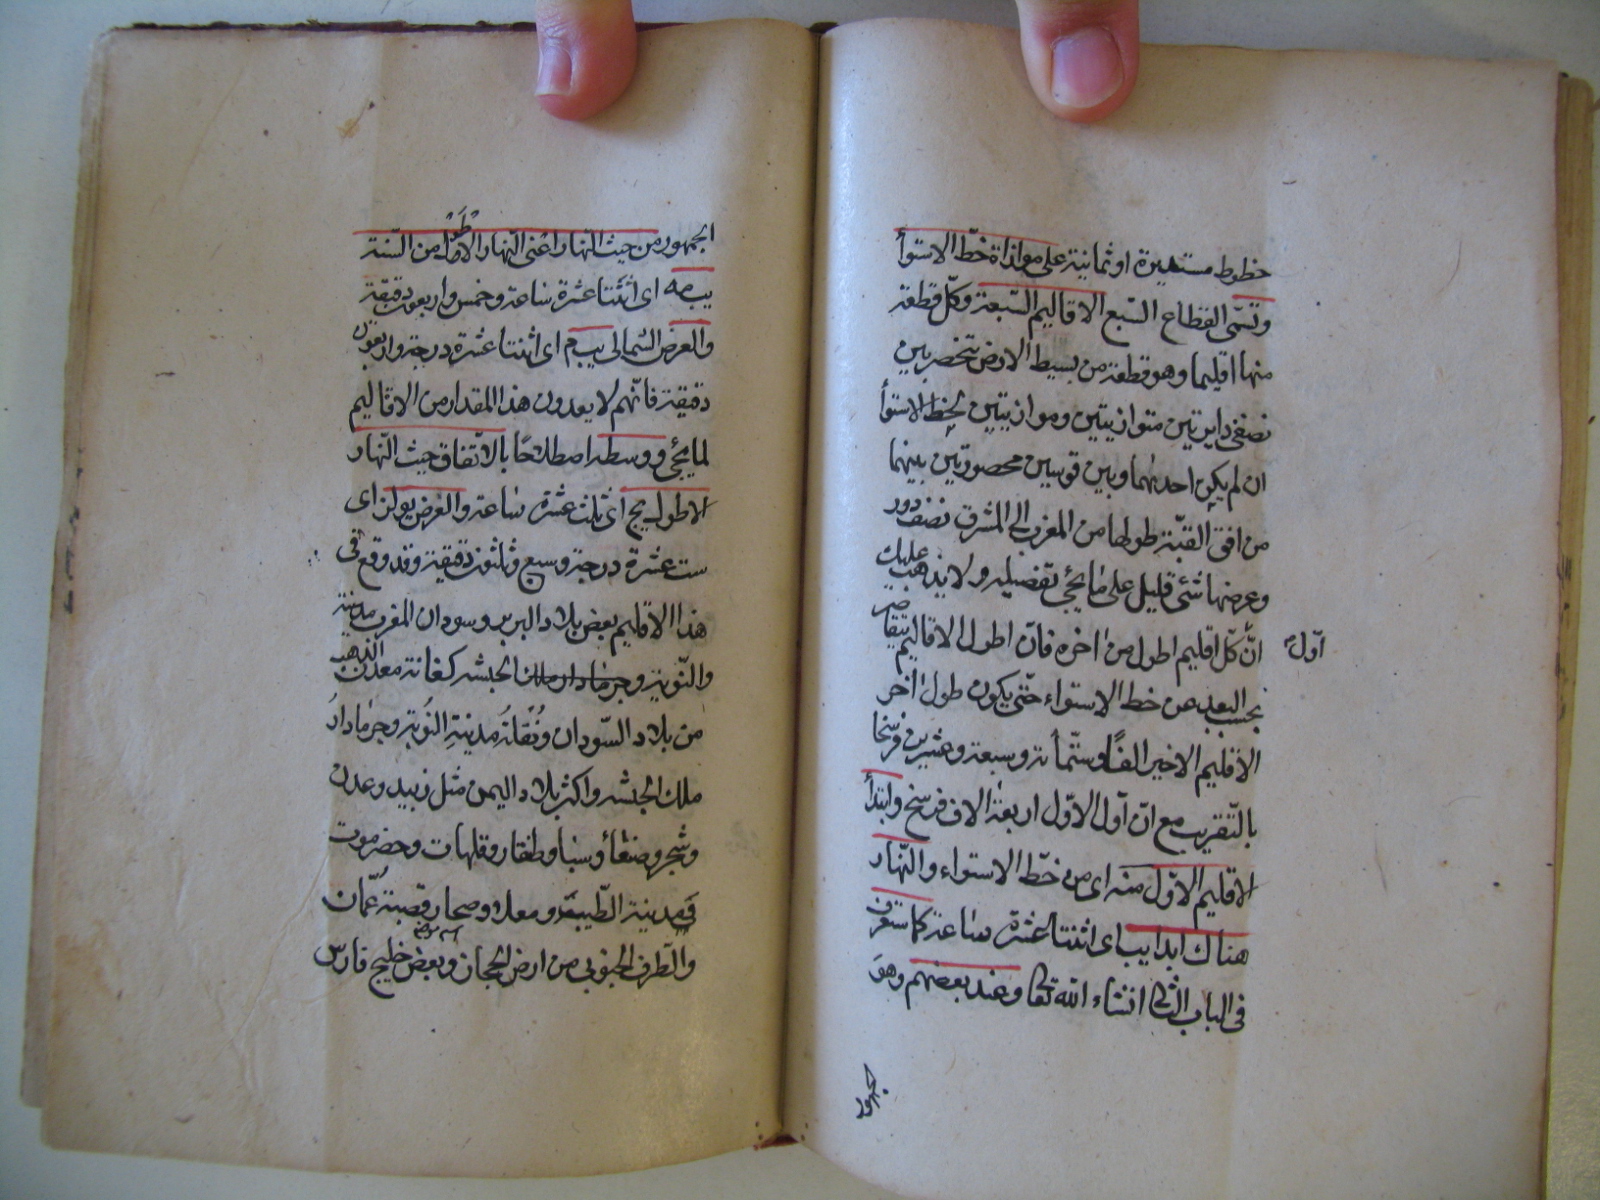 خطوط مستديرة او ثمانية على موازاة خطّ الاستوأ
وتسمّى القطاع السّبع الاقاليم السّبعة وكلّ قطعة
منها اقليما وهو قطعة من بسيط الارض تنحصر بين
نصفى دايرتين متوازيتين وموازيتين لخطّ الاستوأ
ان لم يكن احديهما وبين قوسين محصورتين بينهما
من افق القبّة طولها من المغرب الى المشرق نصف دور
وعرضها شئ قليل على ما يجئ تفصيله ولا يذهب عليك
انّ كلّ اقليم اطول من اخره فانّ اطول الاقاليم يتقاصر
اوّل
بحسب البعد عن خط الاستواء حتّى يكون طول اخر
الاقليم الاخير الفًا وستّمائة وسبعة وعشرين فرسخا
بالتّقريب مع انّ اوّل الاوّل اربعة الاف فرسخ وابتدأ
الاقليم الاوّل منه اى من خطّ الاستواء والنّهار
هناك ابدا يب اى اثنتا عشرة ساعة كما ستعرف
فى الباب الثّانى انشاء الله تعالى وعند بعضهم وهو
الجمهور
الجمهور من حيث النّهار اعنى النّهار الاطول من السّنة
يب مه اى اثنتا عشرة ساعة وخمس واربعون دقيقة
والعرض الشّمالى يب م اى اثنتا عشرة درجة واربعون
دقيقة فانّهم لا يعدون هذا المقدار من الاقاليم
لما يجئ ووسطه اصطلاحًا بالاتّفاق حيث النّهار
الاطول يج اى ثلث عشرة ساعة والعرض يو لز اى
ست عشرة درجة وسبع وثلثون دقيقة وقد وقع فى
هذا الاقليم بعض بلاد البربر وسودان المغرب
والنّوبة الحبشه كغانة معدن الذهب
من بلاد السّودان ودنقلة مدينة النّوبة وجرمادار
ملك الحبشه واكثر بلاد اليمن مثل زبيد وعدن
وشجر وصنعأ وسبا وظفار وقلهات وحضرموت
مدينة الطّيبة وصحار قصبة عُمّان
والطّرف الجنوبى من ارض الحجاز وبعض خليج فارس